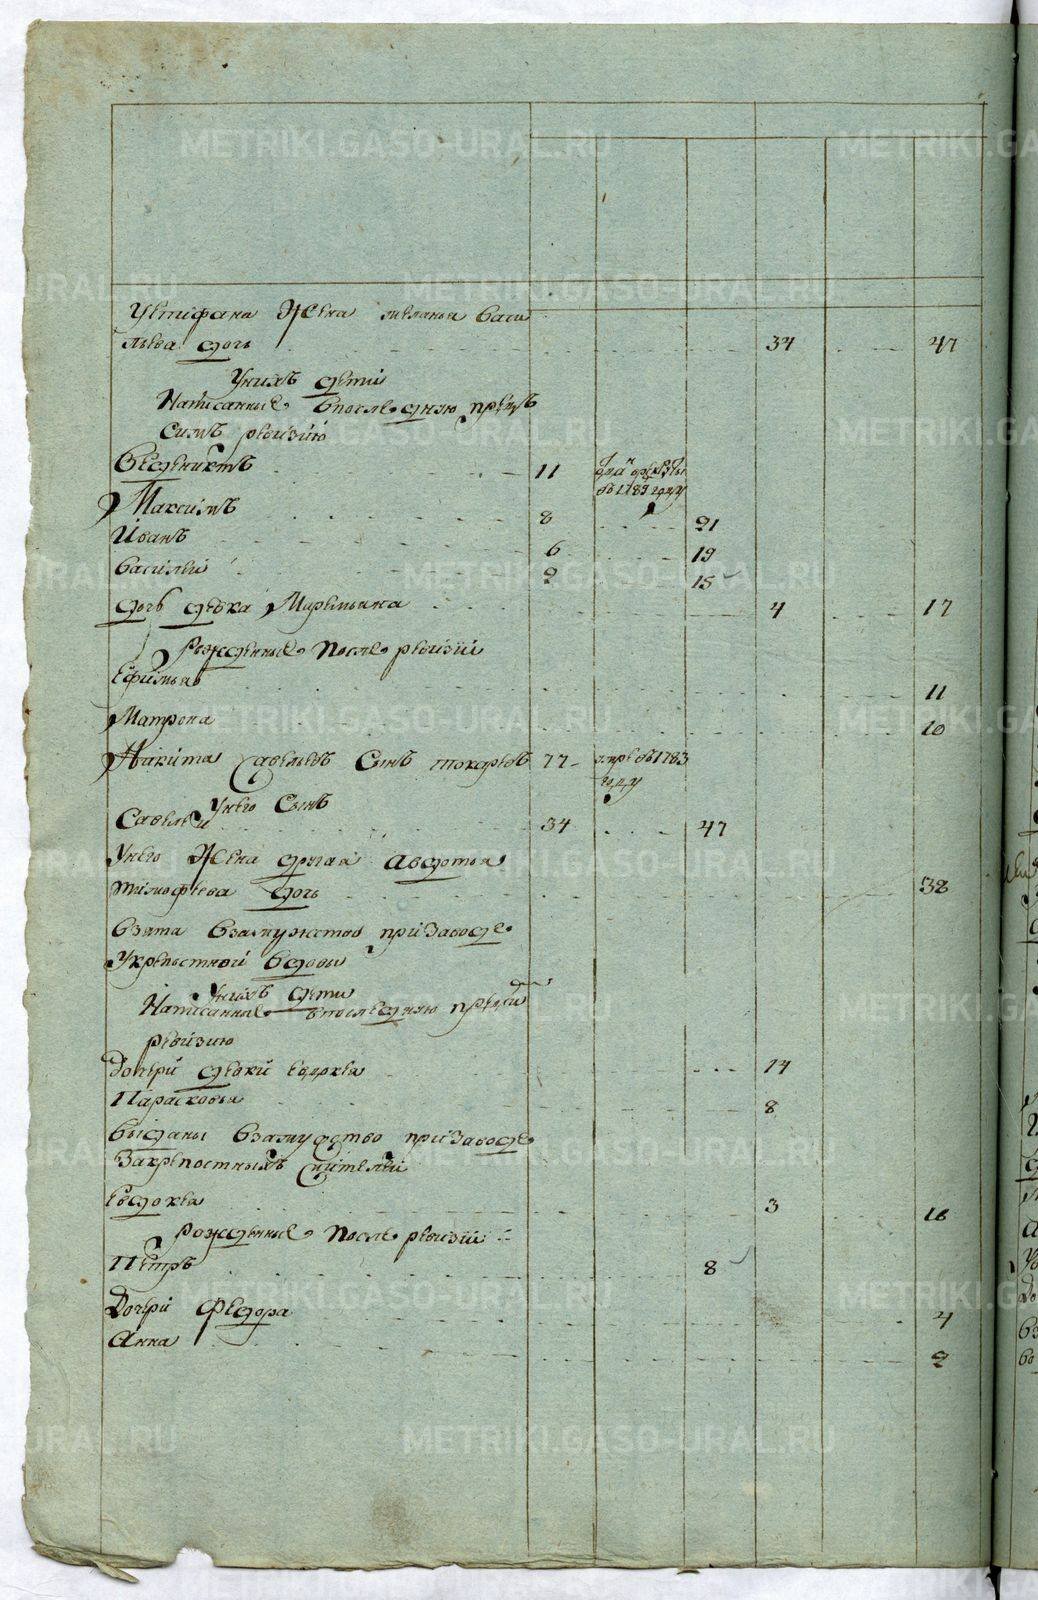 Устифана Жена меланья васи
льева дочь 34 47
Унихъ дети
Написанные впоследнюю предъ
симъ ревизию
Веденихтъ 11
в 1783 году
Максимъ 8 21
Иванъ 6 19
василей 2 15
дочь девка Маремьяна 4 17
Рожденные после ревизии
Ефимья 11
Матрона 10
Никита Савельевъ Сынъ токаревъ 77 умре в 1783
году
Унего Сынъ
Савелей 34 47
Унего Жена другая Авдотья
тимофеева дочь 38
взята взамужство призаводе
Укрепостной вдовы
Унихъ дети
Написанные впоследнюю предъ
ревизию
Дочери девки 14
Парасковья 8
выданы взамужство призаводе
Закрепостныхъ жителей
Евдокея 3 16
рожденные после ревизии
Петръ 8
Дочери Федора 4
Анна 2
METRIKI.GASO-URAL.RU